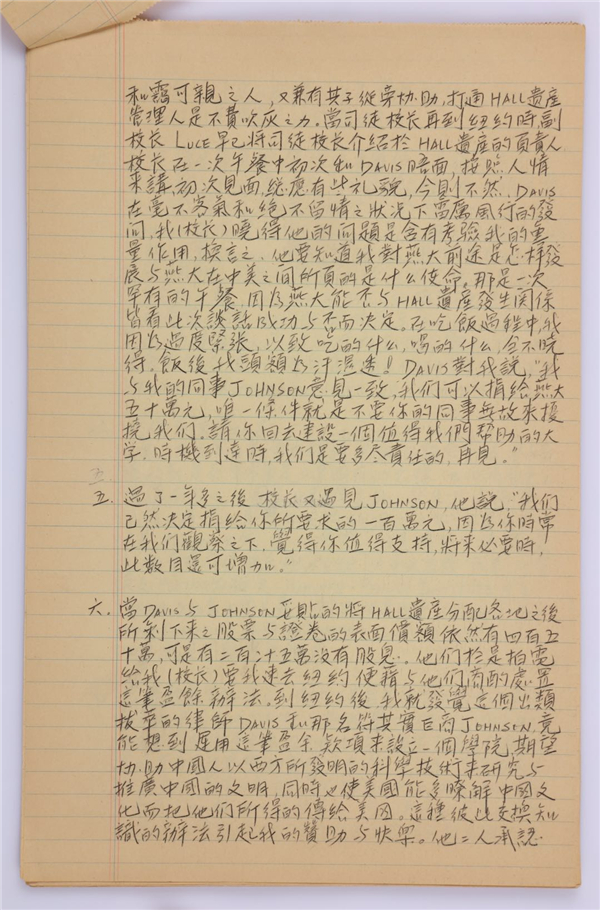 和靄可親之人,又兼有其子從旁协助,打通HALL遺産
管理人是不費吹灰之力。當司徒校长再到纽约時,副
校长 LUCE 早已將司徒校长介绍於 HALL遺産的負責人
校长在一次午餐中初次和DAVIS晤面,按照人情
來講,初次見面,總應有些礼貌,今則不然,DAVIS
在毫不客氣和絶不留情之狀况下雷厲風行的發
问,我(校长)曉得他的问題是含有考驗我的重
量作用,換言之,他要知道我對燕大前途是怎样發
展与燕大在中美之间所負的是什么使命。那是一次
罕有的午餐,因为燕大能否与HALL遺產發生関係
皆看此次談話成功与否而决定。在吃飯過程中,我
因为過度緊張,以致吃的什么,喝的什么,全不曉
得。飯後我頭額为汗濕透!! DAVIS對我説,"我
与我的同事JOHNSON意見一致,我们可以捐給燕大
五十萬元,唯一條件就是不要你的同事無故來擾
撓我们。請你回去建設一個值得我們幫助的大
学,時機到達時,我们是要多尽責任的,再見。"
五
五. 過了一年多之後 校长又遇見JOHNSON,他説,"我们
已然决定捐給你所要求的一百萬元,因为你時常
在我们觀察之下,覺得你值得支持,將来必要時,
此数目還可增加。"
六. 當DAVIS与JOHNSON妥貼的將HALL遺産分配各地之後
所剩下来之股票与證卷的表面價額依然有四百五
十萬,可是有二百廿五萬没有股息。他们於是拍電
給我(校长)要我速去纽约使籍与他们商酌處置
這筆盈餘辦法。到纽约後,我就發覺這個出類
拔萃的律師DAVIS和那名符其實巨商JOHNSON,竟
能想到运用這筆盈余款項来設立一個學院,期望
协助中國人以西方所發明的科學技術来研究与
推廣中國的文明,同時也使美國能多暸解中國文
化而把他们所得的傳給美國。這種彼此交換知
識的辦法引起我的贊助与快樂。他二人承認